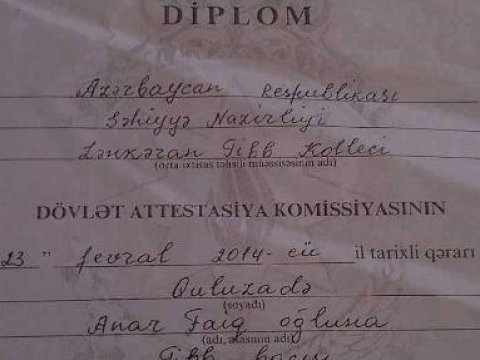 DİPLOM
Azərbaycan Respublikası
Səhiyyə Nazirliyi
Lənkəran Tibb Kolleci
(orta ixtisas təhsili müəssisəsinin adı)
DÖVLƏT ATTESTASİYA KOMİSSİYASININ
23 " fevral 2014-cü il tarixli qərarı
Quluzadə
(soyadı)
Anar Faiq oğluna
(adı, atasının adı)
Tibb bacısı